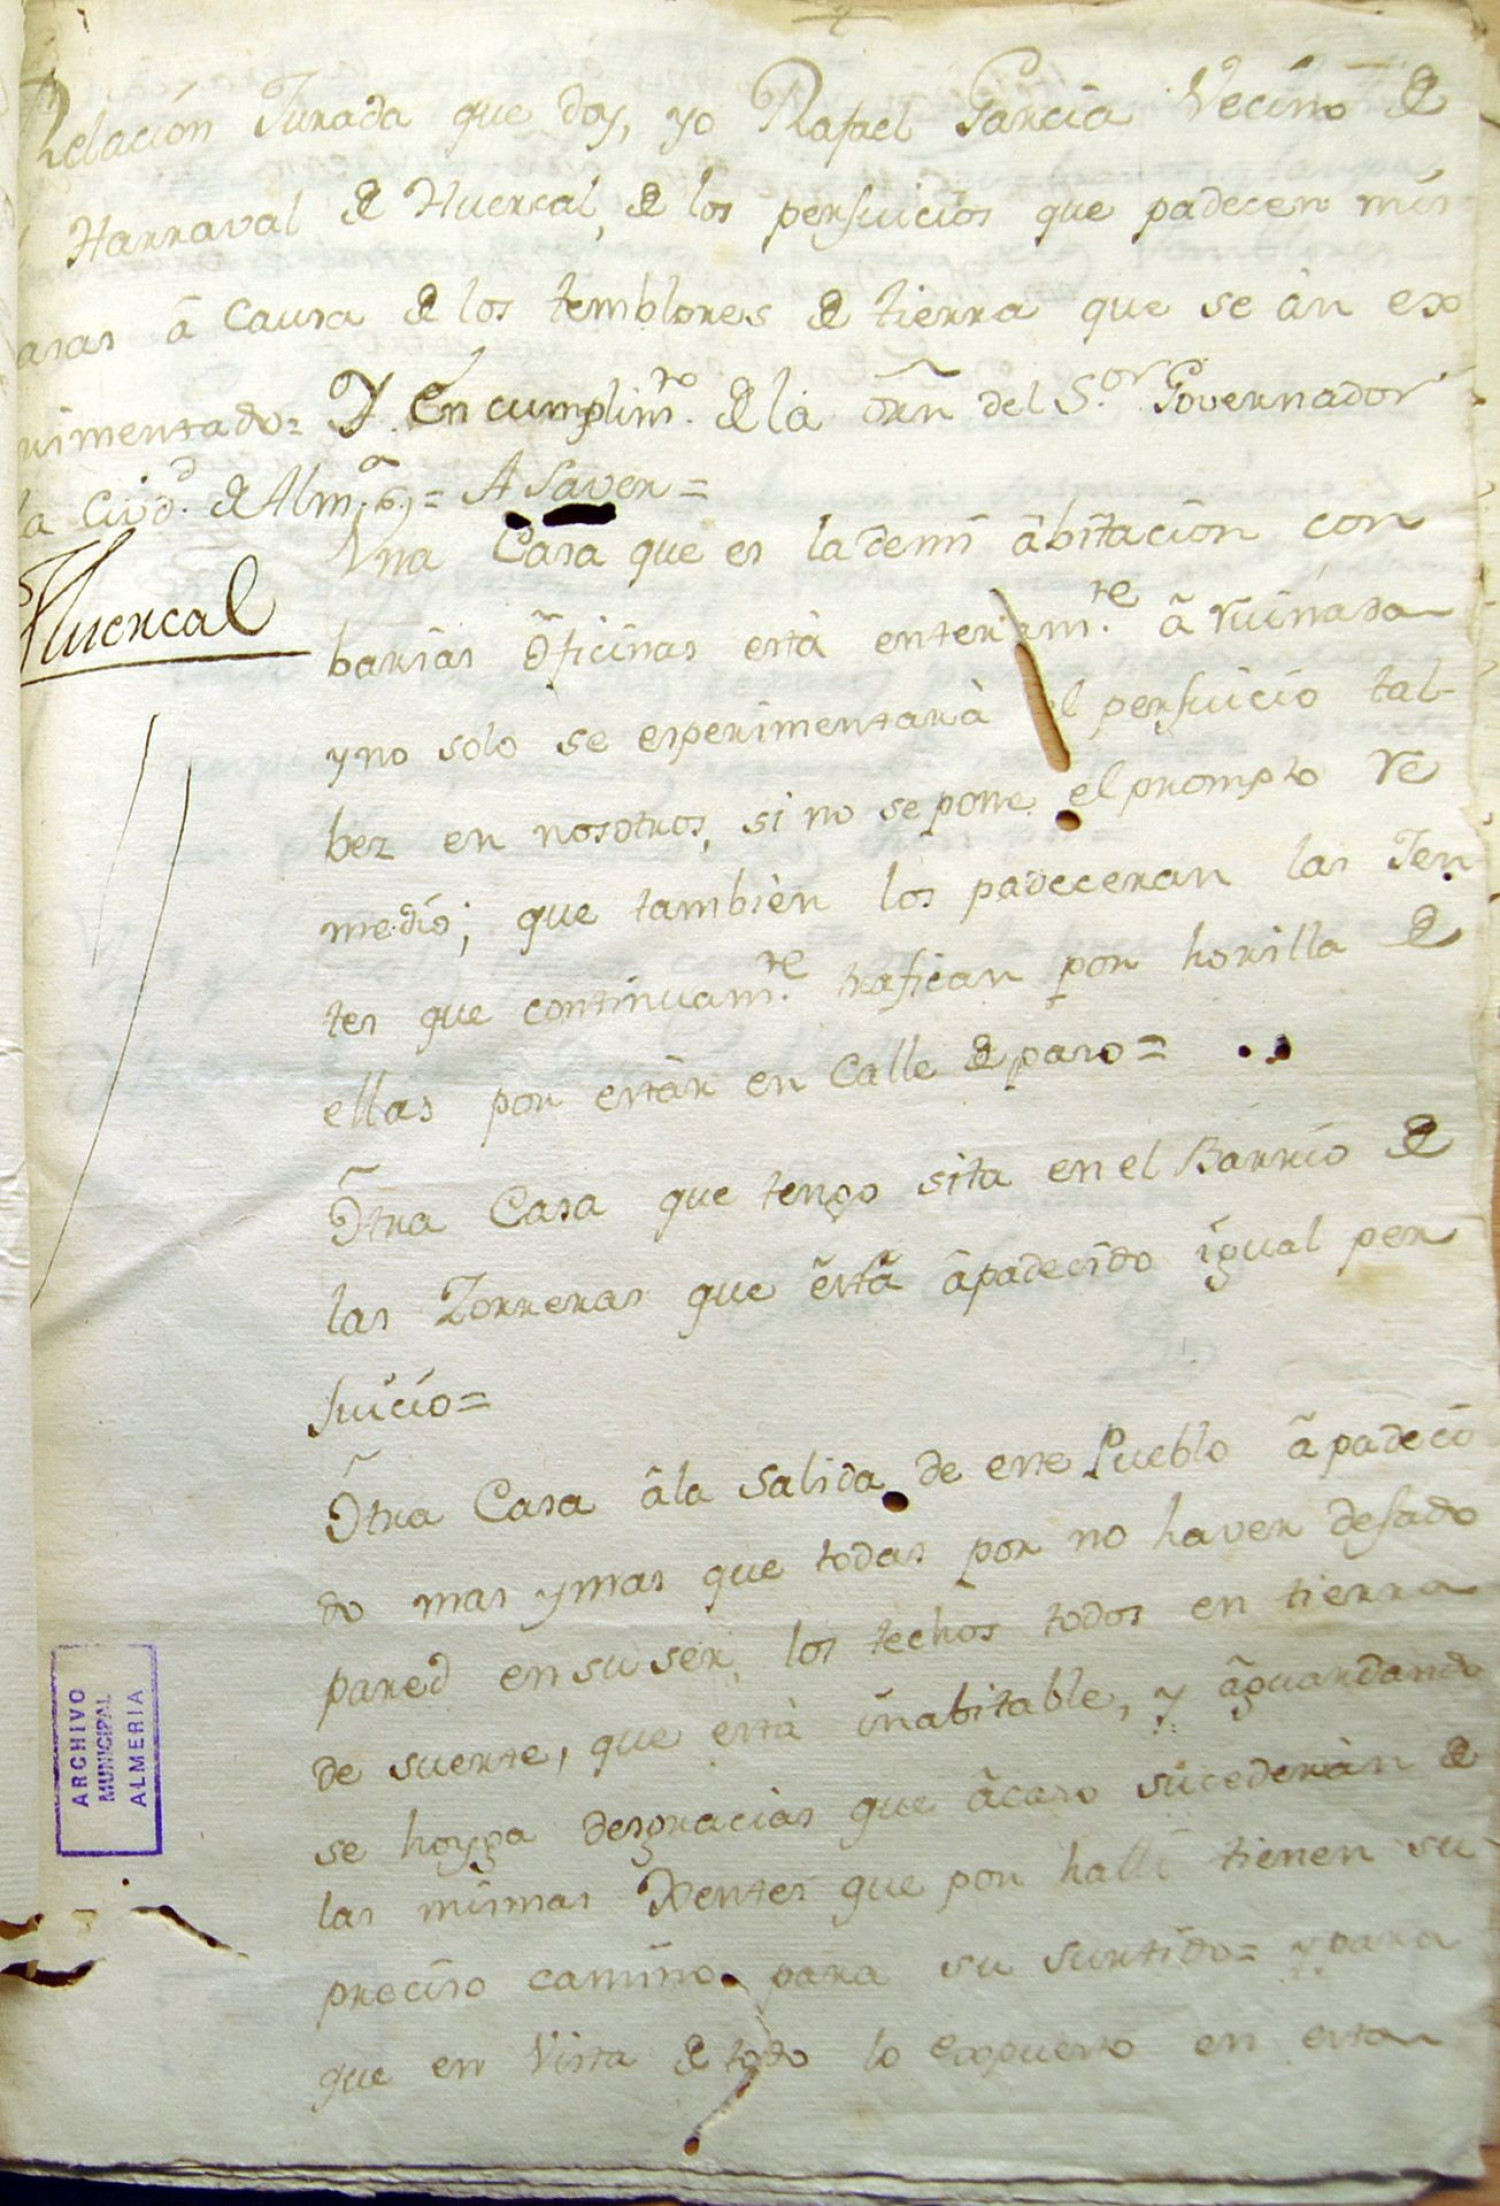 Relacion Jurada que doy, yo Rafael Garcia Vecino de
Harraval de Huercal, de los persuicios que padecen mis
asas â causa de los temblores de tierra que se àn ex
rimentado= Y. En cumplim.to de la orñ del S.or Governador
la Ciud.d de Alm.a = A Saver =
Huercal
Vna Casa que es lademi âbitacion con
barias ôficinas està enteram.te â ruinada
yno solo se esperimentarà el persuicio tal-
bez en nosotros, si no se pone el prompto re
medio; que tambièn los padeceran las Jen
tes que continuam.te trafican por horilla de
ellas por estàr en Calle de paso =
Otra Casa que tengo sita en el Barrio de
las Zorreras que êstâ âpadecido igual per
suicio =
Otra Casa âla salida de este Pueblo âpadeci
do mas ymas que todas por no haver desado
pared ensuser, los techos todos en tierra
de suerte, que està inabitable, y âguardando
se hoyga desgracias que âcaso sucederàn de
las mismas Xentes que por halli tienen su
preciso camino para su surtido = ypara
que en Vista de todo lo expuesto en esta
ARCHIVO
MUNICIPAL
ALMERIA